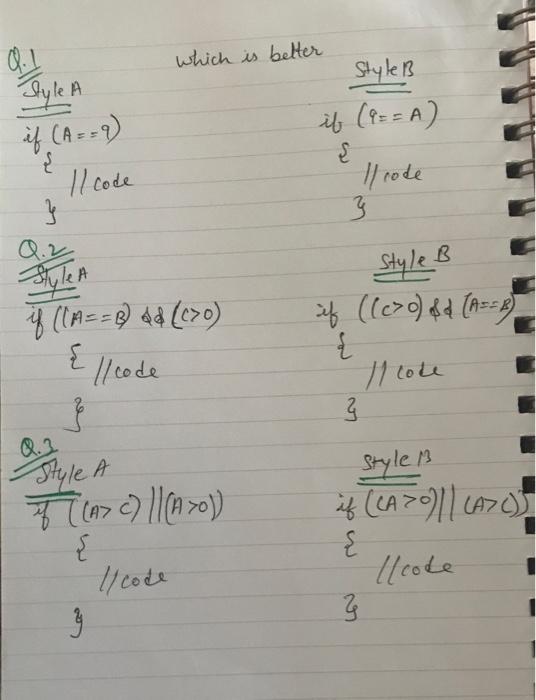 Q.1 which is better
Style A Style B
if (A==9) if (9==A)
{ {
//code //code
} }
Q.2
Style A Style B
if ((A==B) && (C>0) if ((C>0) && (A==B)
{ {
//code //code
} }
Q.3
Style A Style B
if ((A>C) || (A>0)) if ((A>0) || (A>C))
{ {
//code //code
} }